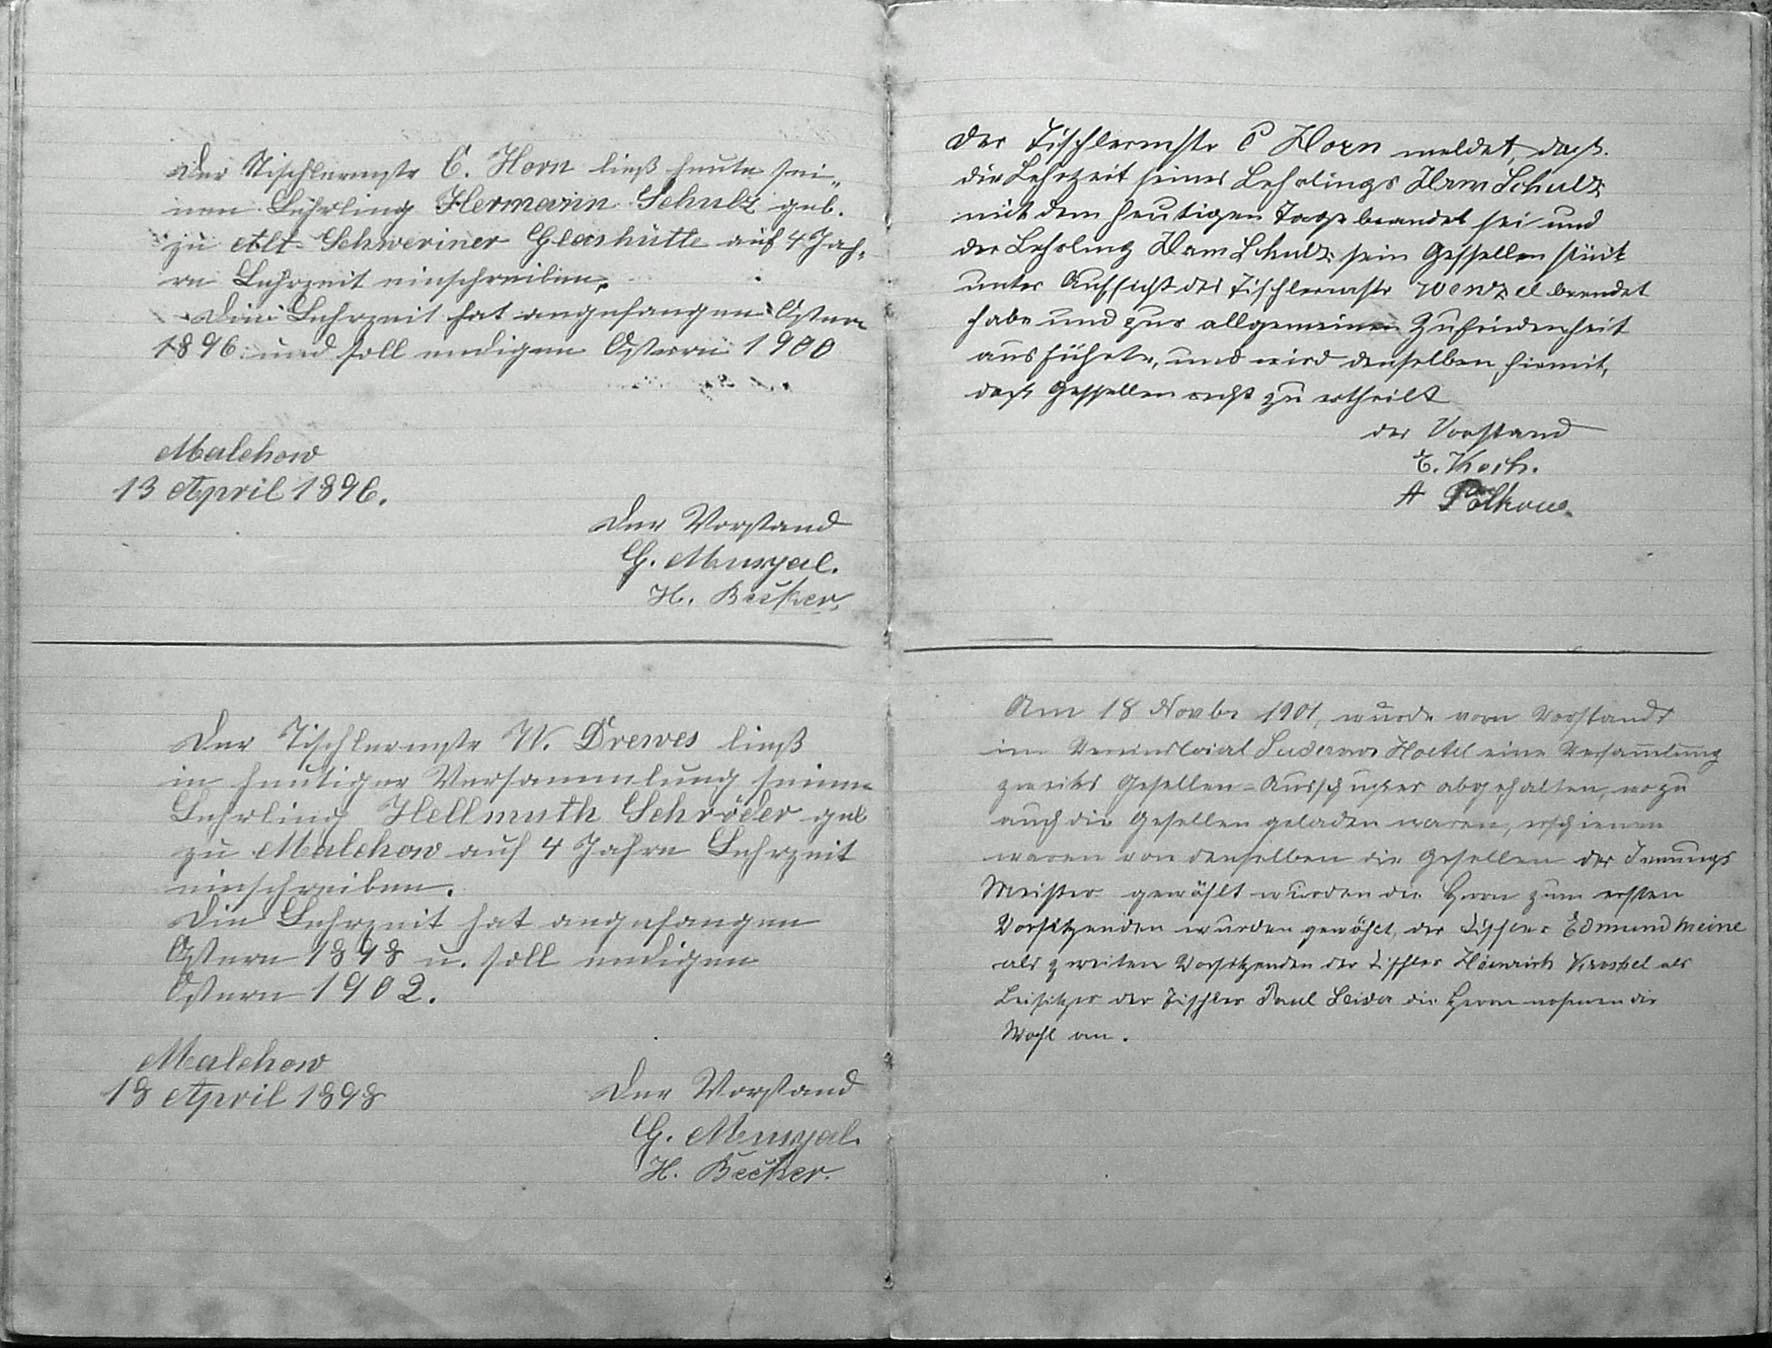 Der Tischlermstr C. Horn ließ heute sei„
nen Lehrling Hermann Schulz geb.
zu Alt Schweriner Glashütte auf 4 Jah„
re Lehrzeit einschreiben.
Die Lehrzeit hat angefangen Ostern
1896 und soll endigen Ostern 1900
Malchow
13 April 1896.
Der Vorstand
G. Mengel.
H. Becker.
Der Tischlermstr W. Drewes ließ
in heutiger Versammlung seinen
Lehrling Hellmuth Schröder geb
zu Malchow auf 4 Jahre Lehrzeit
einschreiben.
Die Lehrzeit hat angefangen
Ostern 1898 u. soll endigen
Ostern 1902.
Malchow
18 April 1898
Der Vorstand
G. Mengel.
H. Becker.
Der Tischlermstr C Horn meldet, daß
die Lehrzeit seines Lehrlings Herm Schulz
mit dem heutigen Tage beendet sei und
der Lehrling Herm Schulz sein Gesellen stück
unter Aufsicht des Tischlermstr Wenzel beendet
habe und zur allgemeinen Zufriedenheit
ausführte, und wird denselben hiemit,
daß Gesellen recht zu ertheilt
der Vorstand
E. Koch.
A Pölkow.
Am 18 Novbr 1901, wurde vom Vorstand
im Vereinslocal Hotel eine Versammlung
zwecks Gesellen-Ausschusses abgehalten, wozu
auch die Gesellen geladen waren, erschienen
waren von denselben die Gesellen der Innungs
Meister gewählt wurden die Herrn zum ersten
Vorsitzenden wurden gewählt, der Tischler Edmund Meine
als zweiten Vorsitzenden der Tischler Heinrich als
Beisitzer der Tischler Paul die Herrn nahmen die
Wahl an.